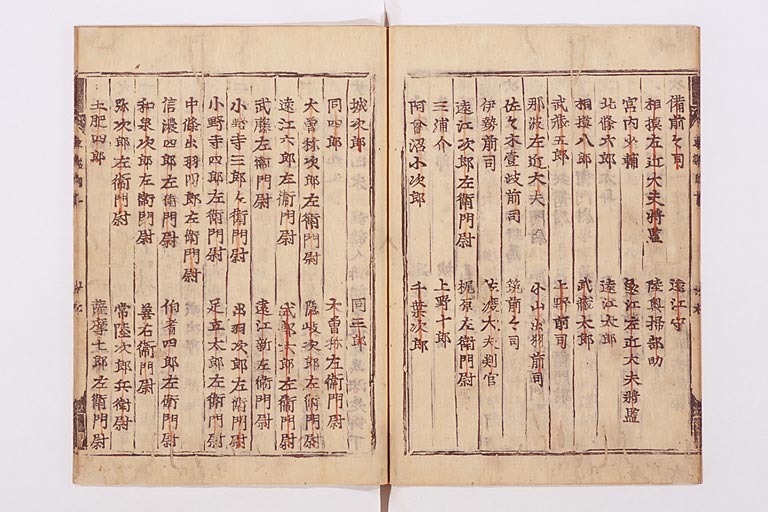 備前々司 遠江守
相摸左近大夫將監 陸奥掃部助
宮内少輔 遠江左近大夫將監
北條六郎 遠江太郎
相摸八郎 武藏太郎
武藏五郎 上野前司
那波左近大夫 小山出羽前司
佐々木壹岐前司 筑前々司
伊勢前司 佐渡大夫判官
遠江次郎左衛門尉 梶原左衛門尉
三浦介 上野十郎
阿曾沼小次郎 千葉次郎
城次郎 同三郎
同四郎 大曾祢左衛門尉
大曽祢次郎左衛門尉 隠岐次郎左衛門尉
遠江六郎左衛門尉 武藤六郎左衛門尉
武藤左衛門尉 遠江新左衛門尉
小野寺三郎左衛門尉 出羽次郎左衛門尉
小野寺四郎左衛門尉 足立太郎左衛門尉
中條出羽四郎左衛門尉
信濃四郎左衛門尉 伯耆四郎左衛門尉
和泉次郎左衛門尉 善右衛門尉
弥次郎左衛門尉 常陸次郎兵衛尉
土肥四郎 薩摩七郎左衛門尉